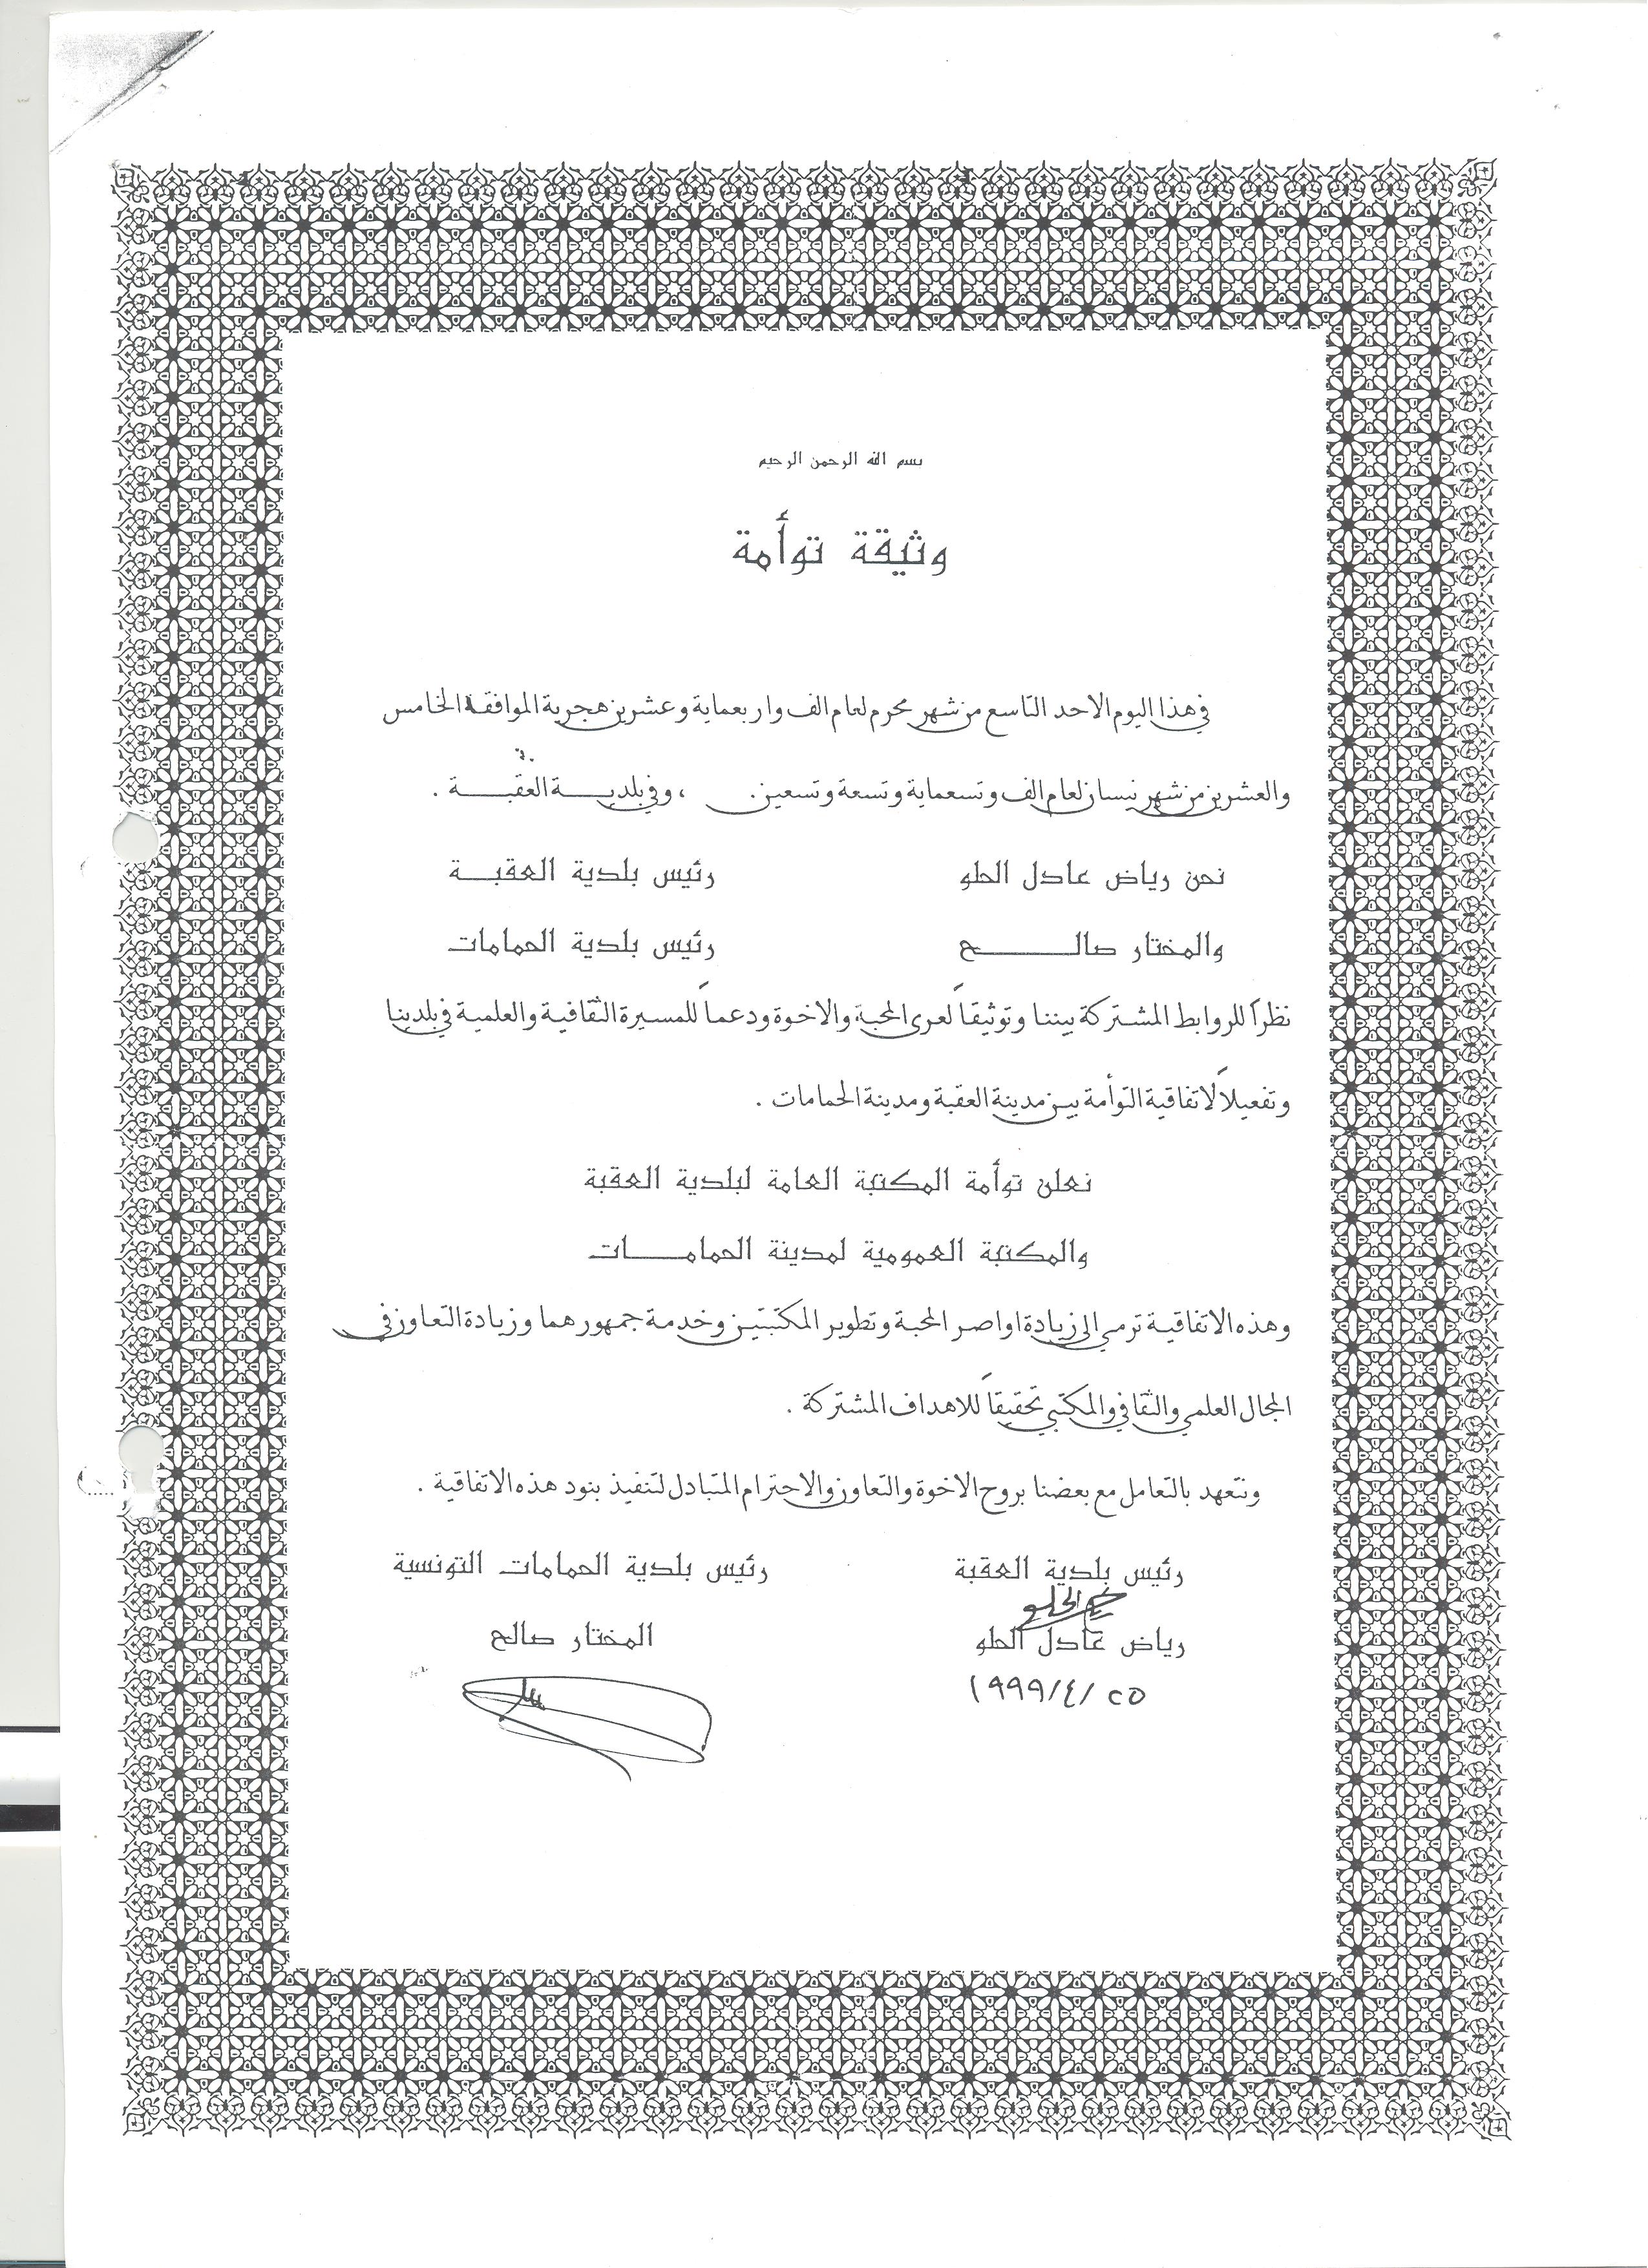 بسم الله الرحمن الرحيم
وثيقة توأمة
في هذا اليوم الاحد التاسع من شهر محرم لعام الف واربعماية وعشرين هجرية الموافق الخامس
والعشرين من شهر نيسان لعام الف وتسعماية وتسعة وتسعين . ، وفي بلديـــة العقبـــة .
نحن رياض عادل الحلو رئيس بلدية العقبـــة
والمختار صالـــــح رئيس بلدية الحمامات
نظراً للروابط المشتركة بيننا وتوثيقاً لعرى المحبة والاخوة ودعماً للمسيرة الثقافية والعلمية في بلدينا
وتفعيلاً لاتفاقية التوأمة بين مدينة العقبة ومدينة الحمامات .
نعلن توأمة المكتبة العامة لبلدية العقبة
والمكتبة العمومية لمدينة الحمامـــات
وهذه الاتفاقية ترمي الى زيادة اواصر المحبة وتطوير المكتبتين وخدمة جمهورهما وزيادة التعاون في
المجال العلمي والثقافي والمكتبي تحقيقاً للاهداف المشتركة .
ونتعهد بالتعامل مع بعضنا بروح الاخوة والتعاون والاحترام المتبادل لتنفيذ بنود هذه الاتفاقية .
رئيس بلدية العقبة رئيس بلدية الحمامات التونسية
رياض عادل الحلو المختار صالح
٢٥/٤/١٩٩٩